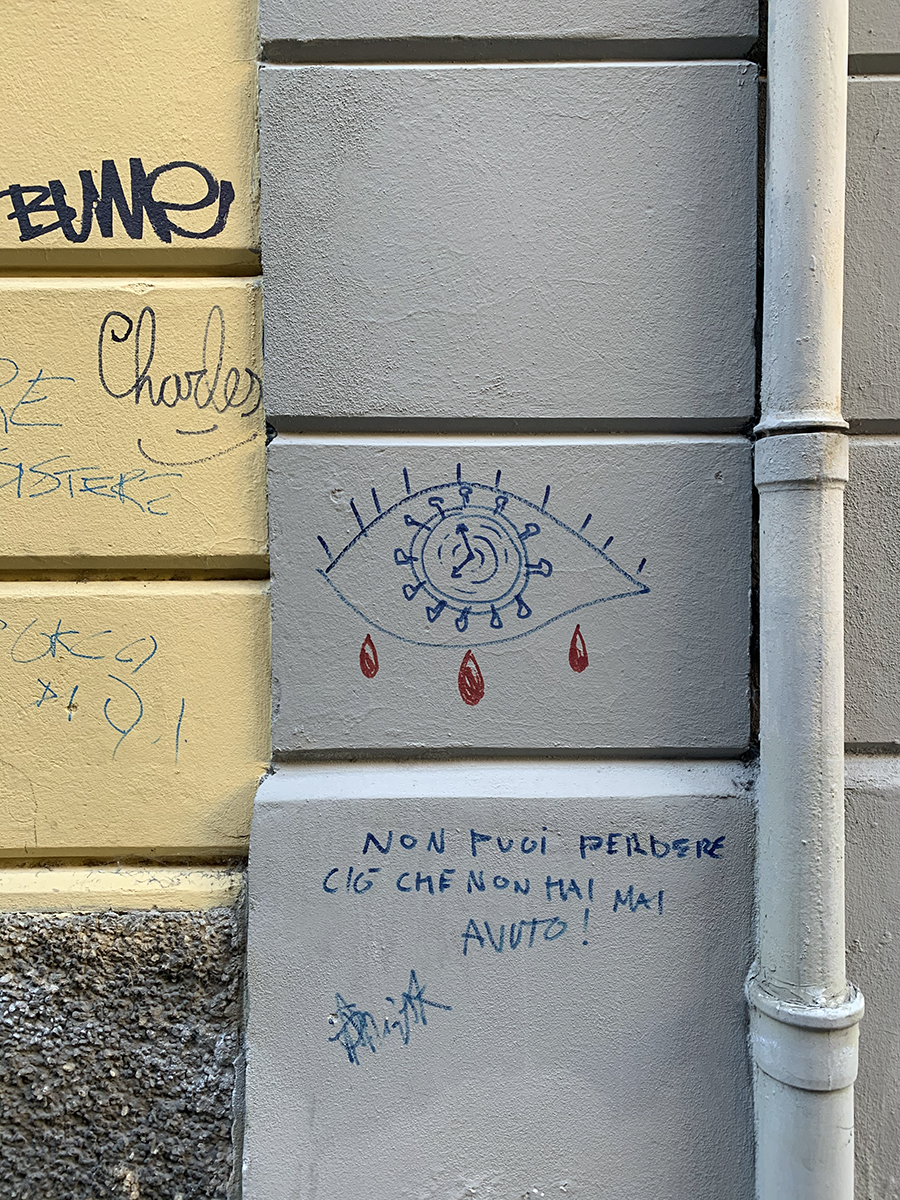 BUNE
Charles
RE
SISTERE
NON PUOI PERDERE
CIÒ CHE NON HAI MAI
AVUTO!